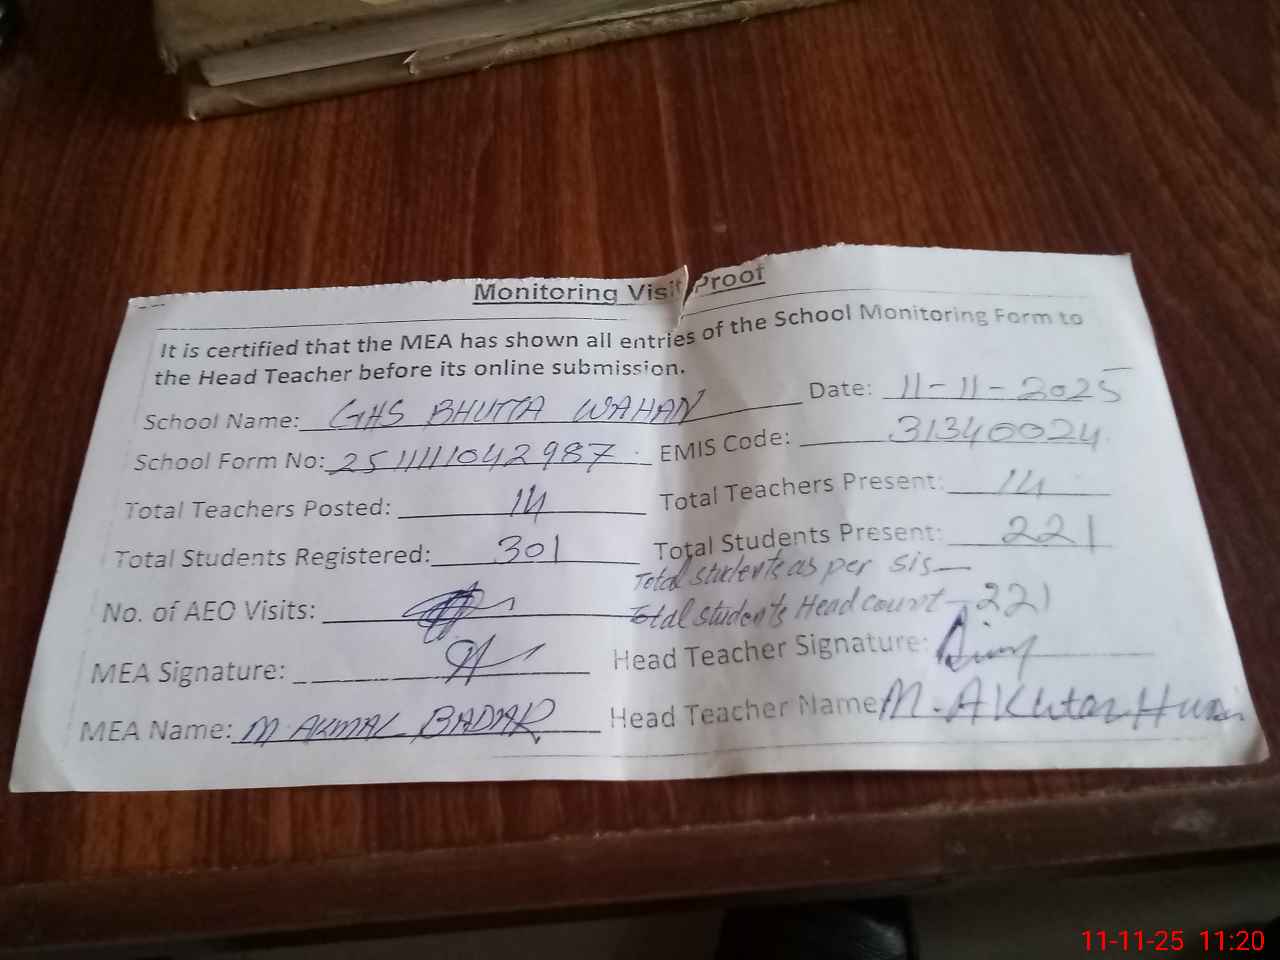 Monitoring Visit Proof
It is certified that the MEA has shown all entries of the School Monitoring Form to
the Head Teacher before its online submission.
School Name: GHS BHUTTA WAHAN Date: 11-11-2025
School Form No: 25111111042987 EMIS Code: 31340024
Total Teachers Posted: 14 Total Teachers Present: 14
Total Students Registered: 301 Total Students Present: 221
Total students as per sis—
No. of AEO Visits: Total students Head count - 221
MEA Signature: Head Teacher Signature:
MEA Name: M. AKMAL BADAR Head Teacher Name M. Akhtar
11-11-25 11:20